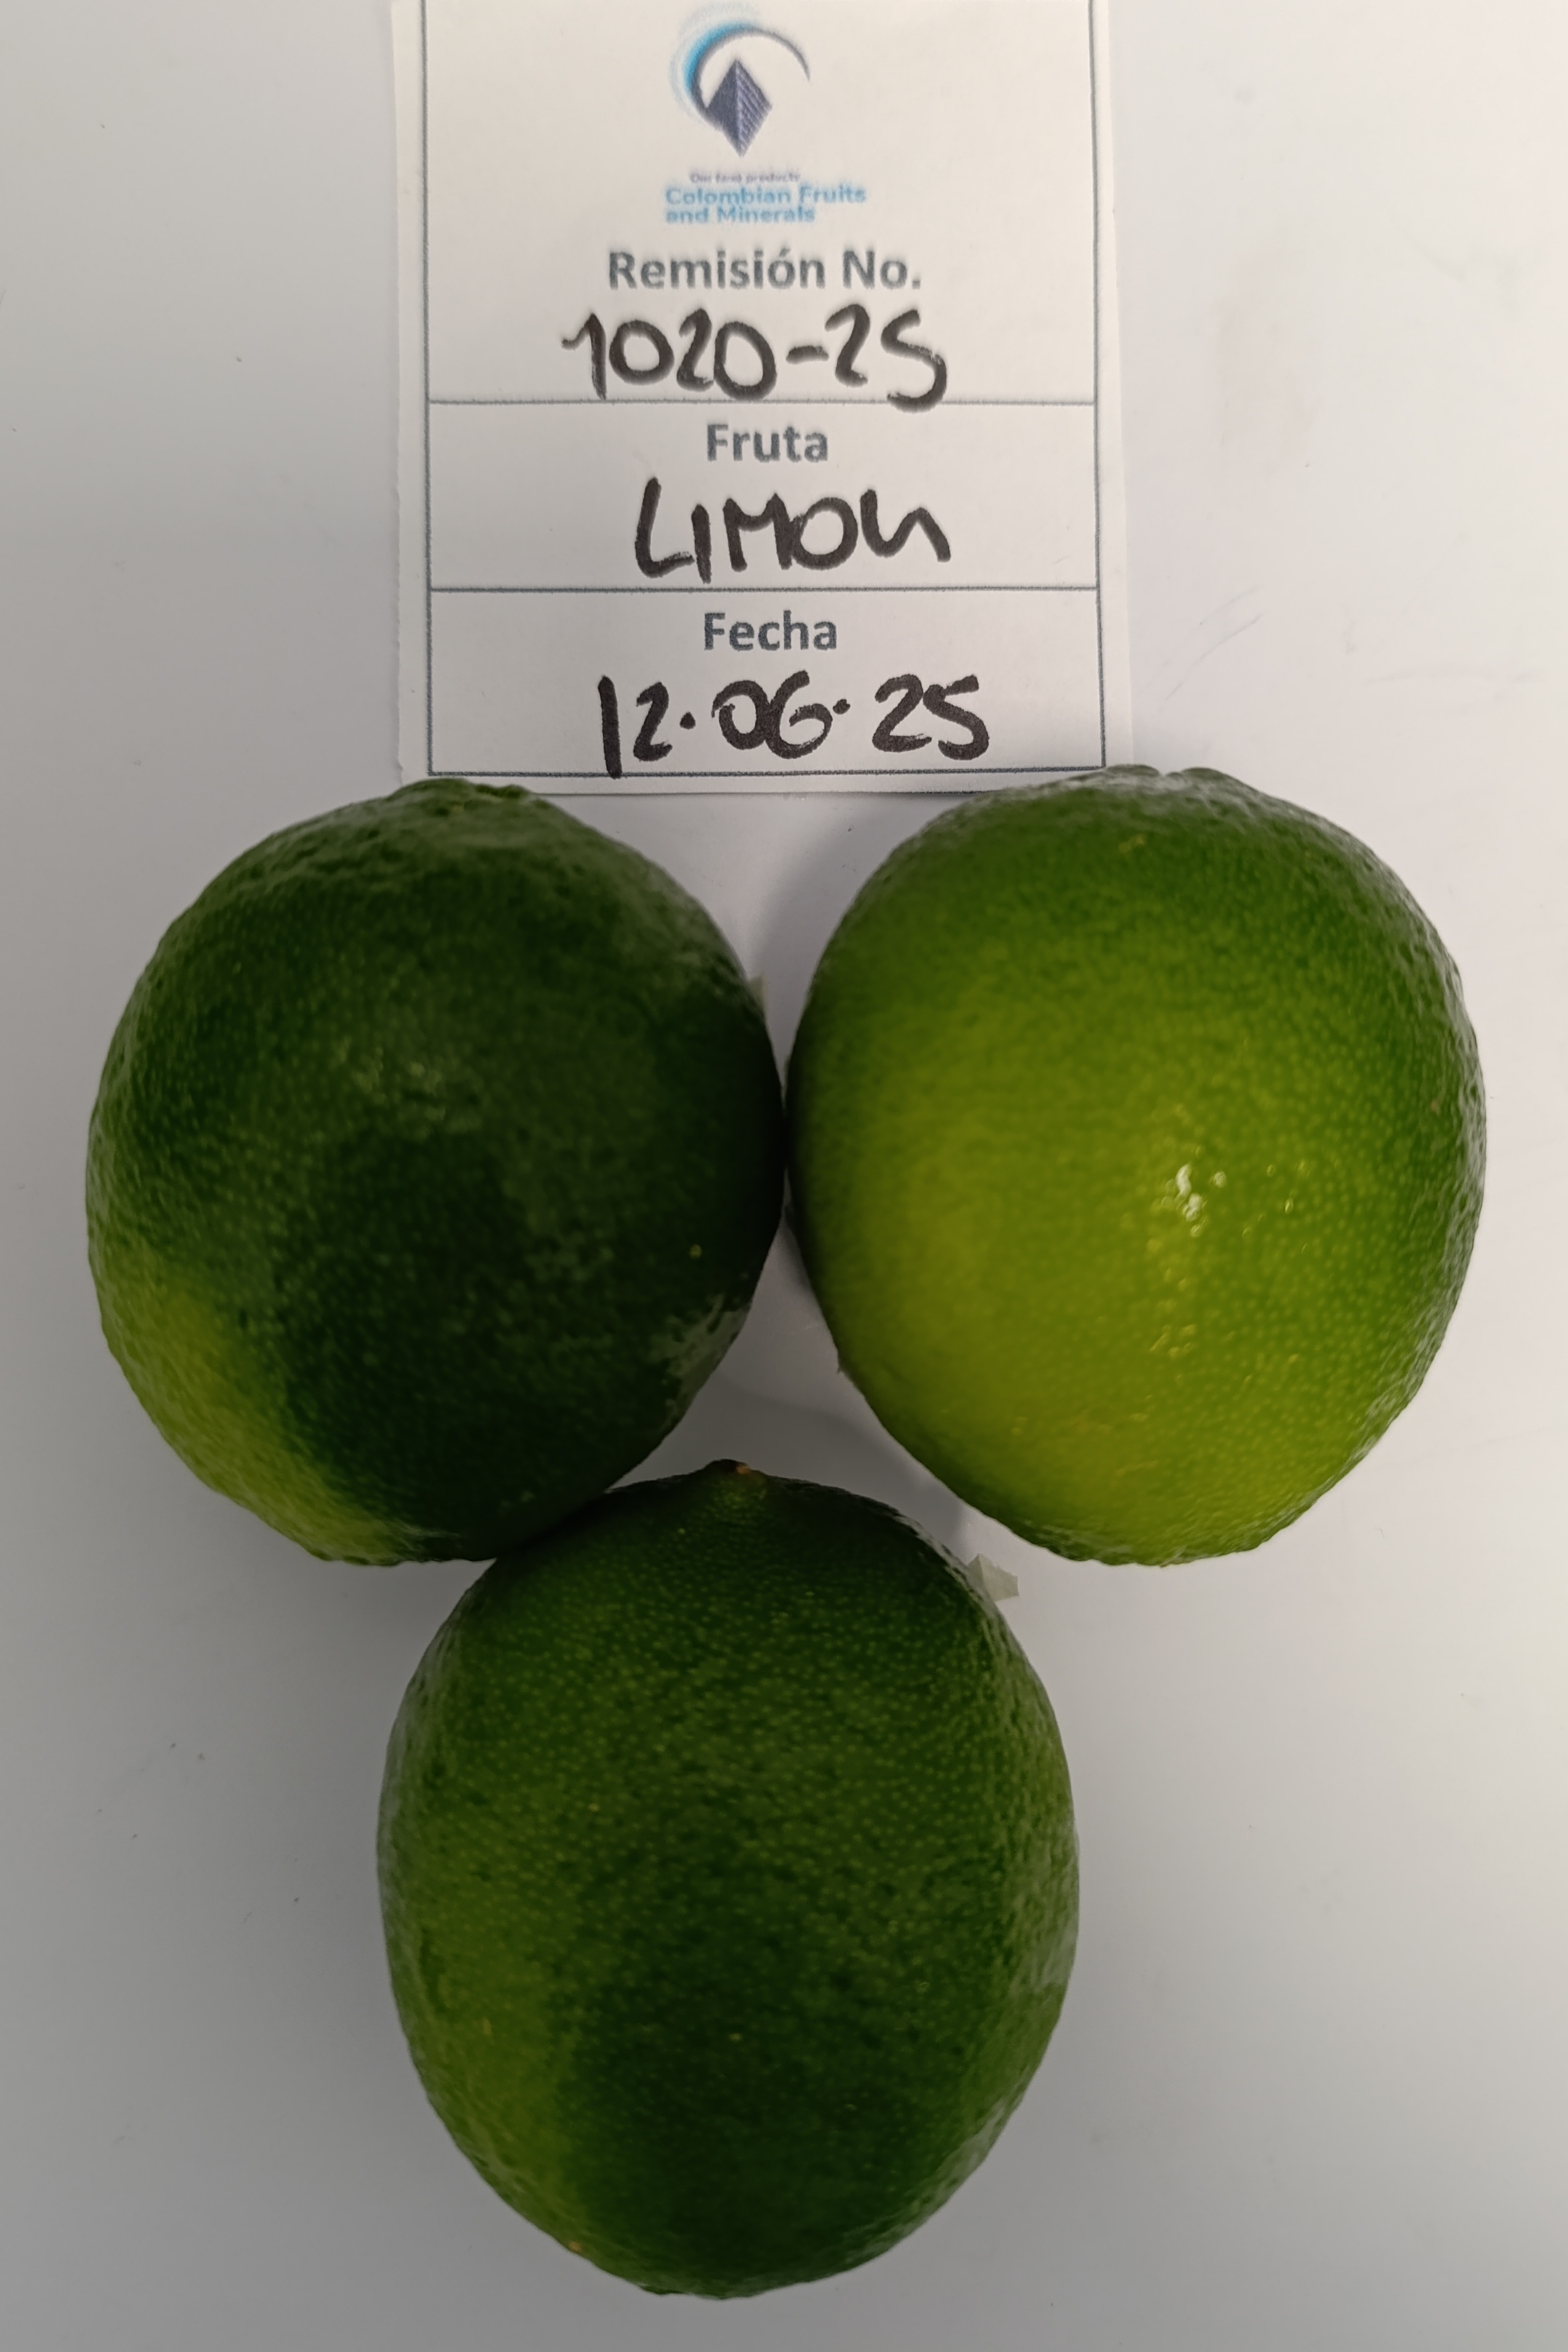 Our food products
Colombian Fruits
and Minerals
Remisión No.
1020-25
Fruta
LIMON
Fecha
12.06.25